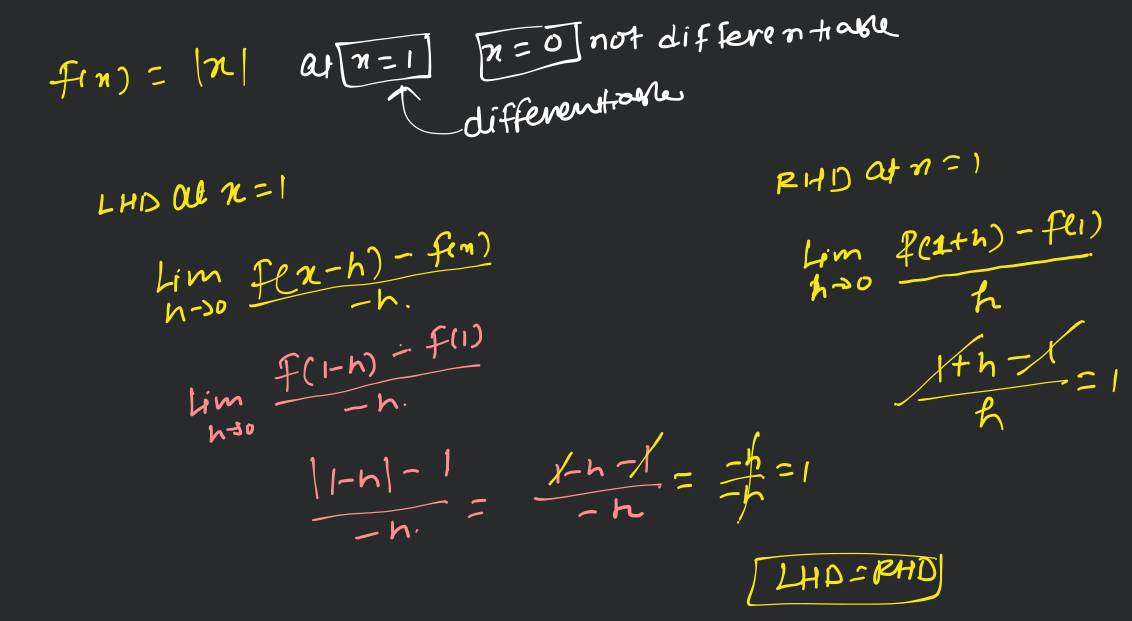 f(x) = |x| at x = 1 x = 0 not differentiable
differentiable
LHD at x = 1
Lim h→0 f(x-h) - f(x) / -h.
Lim h→0 f(1-h) - f(1) / -h.
|1-h| - 1 / -h. = 1-h-1 / -h = -h / -h = 1
RHD at x = 1
Lim h→0 f(1+h) - f(1) / h
1+h-1 / h = 1
LHD = RHD